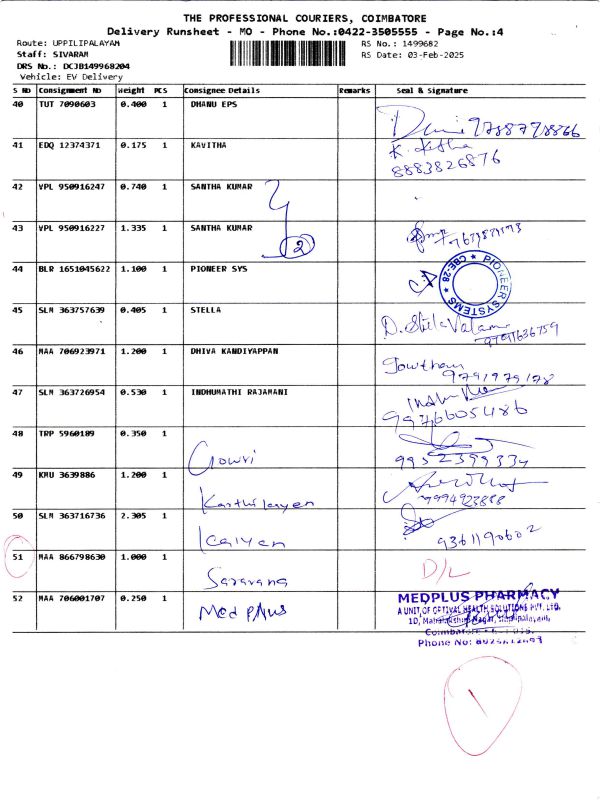 THE PROFESSIONAL COURIERS, COIMBATORE
Delivery Runsheet - MO - Phone No.:0422-3505555 - Page No.:4
Route: UPPILIPALAYAM
RS No.: 1499682
Staff: SIVARAM
RS Date: 03-Feb-2025
DRS No.: DCJB149968204
Vehicle: EV Delivery
S No Consignment No Weight PCS Consignee Details Remarks Seal & Signature
40 TUT 7090603 0.400 1 DHANU EPS
9788798866
41 EDQ 12374371 0.175 1 KAVITHA K. Kavitha
8883826876
42 VPL 950916247 0.740 1 SANTHA KUMAR
43 VPL 950916227 1.335 1 SANTHA KUMAR
2
44 BLR 1651045622 1.100 1 PIONEER SYS
PIONEER SYSTEMS ★ CBE-28 ★
45 SLM 363757639 0.405 1 STELLA
46 MAA 706923971 1.200 1 DHIVA KANDIYAPPAN Gowtham
9791979178
47 SLM 363726954 0.530 1 INDHUMATHI RAJAMANI
9976605486
48 TRP 5960189 0.350 1 Gowri
9952399334
49 KMU 3639886 1.200 1 Karthikeyan
7994923888
50 SLM 363716736 2.305 1 Kalyan
9361190602
51 MAA 866798630 1.000 1 Saravana D/L
52 MAA 706001707 0.250 1 Med Plus
MEDPLUS PHARMACY
A UNIT OF OPTIVAL HEALTH SOLUTIONS PVT. LTD.
1D, Nagar, Uppilipalayam,
Phone No: